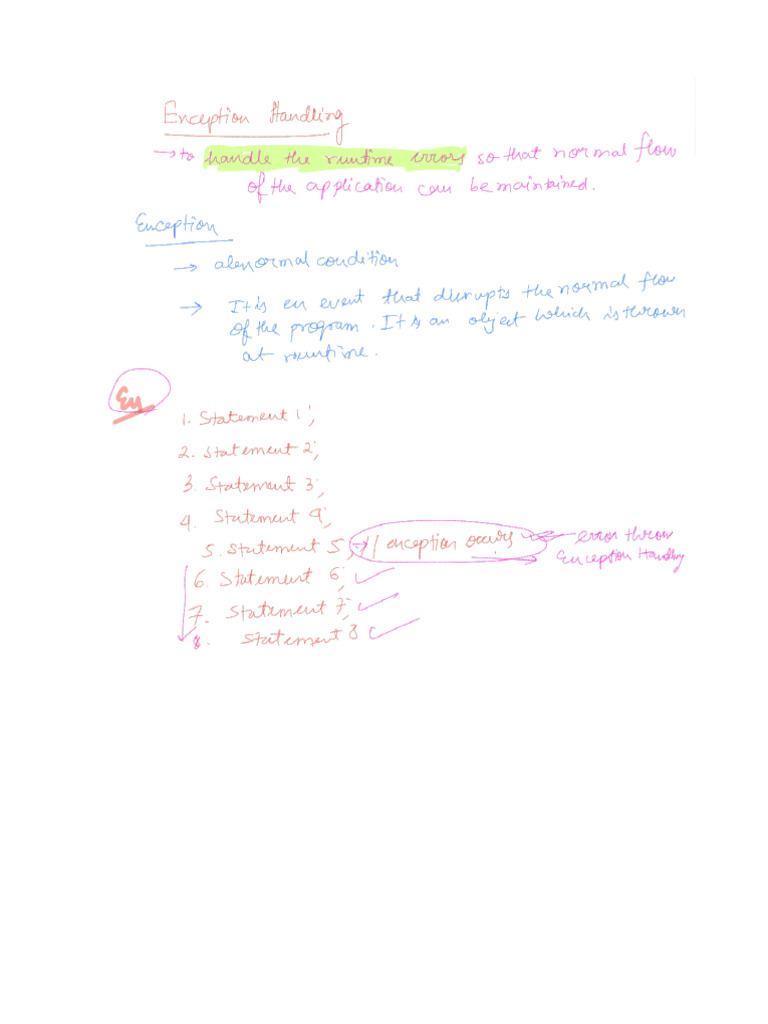 Exception Handling
→ to handle the runtime errors so that normal flow
of the application can be maintained.
Exception
→ abnormal condition
→ It is en event that disrupts the normal flow
of the program. It is an object which is thrown
at runtime.
Ex
1. Statement 1;
2. Statement 2;
3. Statement 3;
4. Statement 4;
5. Statement 5; → // exception occurs ← error throw
Exception Handling
6. Statement 6;
7. Statement 7;
8. Statement 8